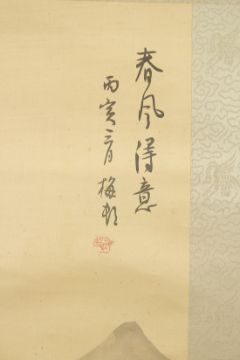 春風得意
丙寅三月 梅邨